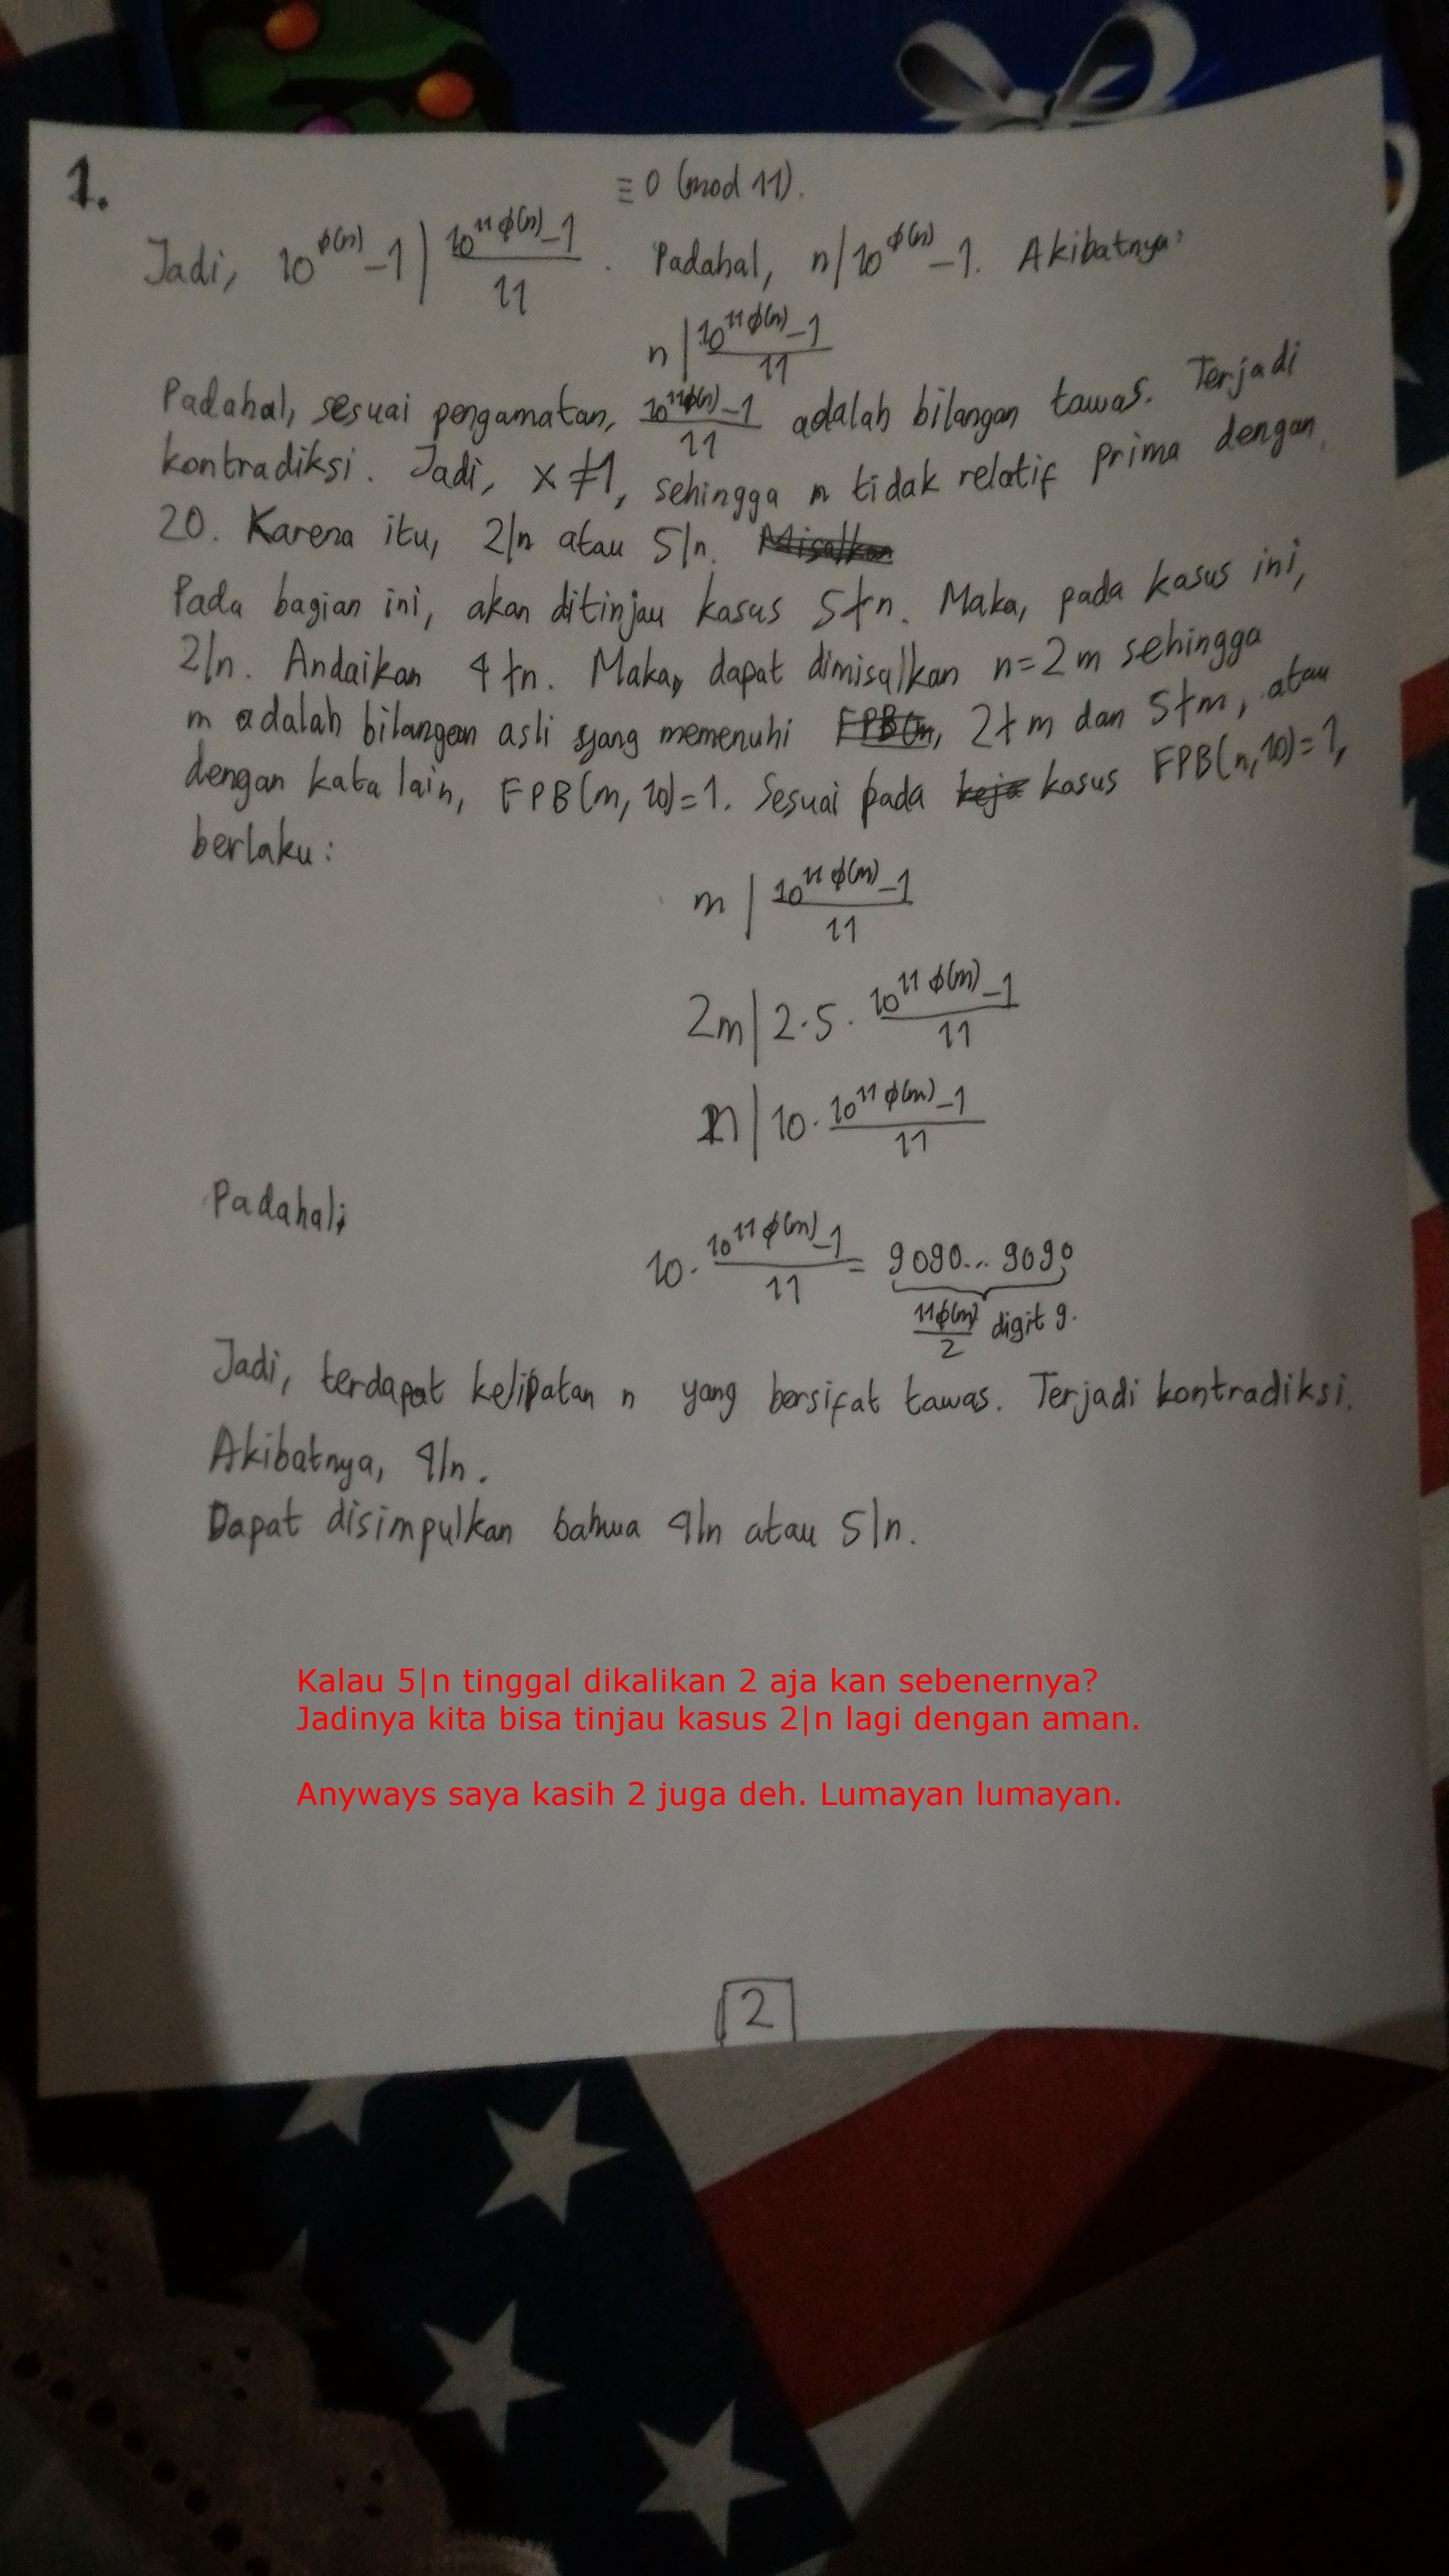 1.
≡ 0 (mod 11).
Jadi, 10^ϕ(n) - 1 | (10^11ϕ(n) - 1)/11 . Padahal, n | 10^ϕ(n) - 1. Akibatnya:
n | (10^11ϕ(n) - 1)/11
Padahal, sesuai pengamatan, (10^11ϕ(n) - 1)/11 adalah bilangan tawas. Terjadi
kontradiksi. Jadi, x ≠ 1, sehingga n tidak relatif prima dengan
20. Karena itu, 2|n atau 5|n. Misalkan
Pada bagian ini, akan ditinjau kasus 5∤n. Maka, pada kasus ini,
2|n. Andaikan 4∤n. Maka, dapat dimisalkan n=2m sehingga
m adalah bilangan asli yang memenuhi FPB(m, 2∤m dan 5∤m, atau
dengan kata lain, FPB(m, 10)=1. Sesuai pada kasus FPB(n,10)=1,
berlaku:
m | (10^11ϕ(m) - 1)/11
2m | 2·5· (10^11ϕ(m) - 1)/11
n | 10· (10^11ϕ(m) - 1)/11
Padahal,
10· (10^11ϕ(m) - 1)/11 = 9090... 9090
11ϕ(m)/2 digit 9.
Jadi, terdapat kelipatan n yang bersifat tawas. Terjadi kontradiksi.
Akibatnya, 4|n.
Dapat disimpulkan bahwa 4|n atau 5|n.
Kalau 5|n tinggal dikalikan 2 aja kan sebenernya?
Jadinya kita bisa tinjau kasus 2|n lagi dengan aman.
Anyways saya kasih 2 juga deh. Lumayan lumayan.
2